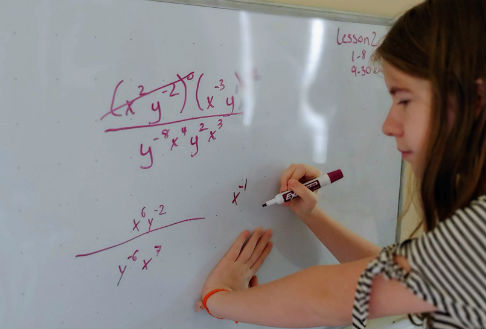 Lesson 2
1-8
9-30
(x²y⁻²)⁰(x⁻³y
y⁻⁸x⁴y²x³
x⁻¹
x⁶y⁻²
y⁻⁶x⁷